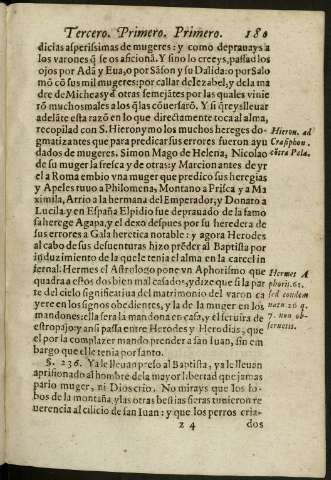 Tercero. Primero. Primero. 180
dicias asperissimas de mugeres: y como deprauays a
los varones q̃ se os aficionã. Y sino lo creeys, passad los
ojos por Adã y Eua, o por Sãson y su Dalida: o por Salo
mõ cõ sus mil mugeres: por callar de Iezabel, y de la ma
dre de Micheas y de otras semejãtes por las quales vinie
rõ muchos males a los q̃ las cõuersarõ. Y si q̃reys lleuar
adelãte esta razõ en lo que directamente toca al alma,
recopilad con S. Hieronymo los muchos hereges do-
gmatizantes que para predicar sus errores fueron ayu
dados de mugeres. Simon Mago de Helena, Nicolao
de su muger la fresca y de otras: y Marcion antes de yr
el a Roma embio vna muger que predico sus heregias
y Apeles tuuo a Philomena, Montano a Prisca y a Ma
ximila, Arrio a la hermana del Emperador, y Donato a
Lucila, y en España Elpidio fue deprauado de la famo
sa herege Agapa, y el dexo despues por su heredera de
sus errores a Gala heretica notable: y agora Herodes
al cabo de sus desuenturas hizo prẽder al Baptista por
induzimiento de la que le tenia el alma en la carcel in
fernal. Hermes el Astrologo pone vn Aphorismo que
quadra a estos dos bien mal casados, y dize que si la par
te del ciclo significatiua del matrimonio del varon ca
yere en los signos obedientes, y la de la muger en los
mandones: ella sera la mandona en casa, y el seruira de
estropajo: y ansi passa entre Herodes y Herodias, que
el por la complazer mando prender a san Iuan, sin em
bargo que elle tenia por santo.
§. 236. Ya le lleuan preso al Baptista, ya le lleuan
aprisionado al hombre de la mayor libertad que jamas
pario muger, ni Dios crio. No mirays que los lo-
bos de la montaña, y las otras bestias fieras tuuieron re
uerencia al cilicio de san Iuan: y que los perros cria-
z 4 dos
Hieron. ad
Cratiphon.
cõtra Pela.
Hermes A
phoris. 61.
sed condem
natu 26 q.
7. non ob-
seruetis.